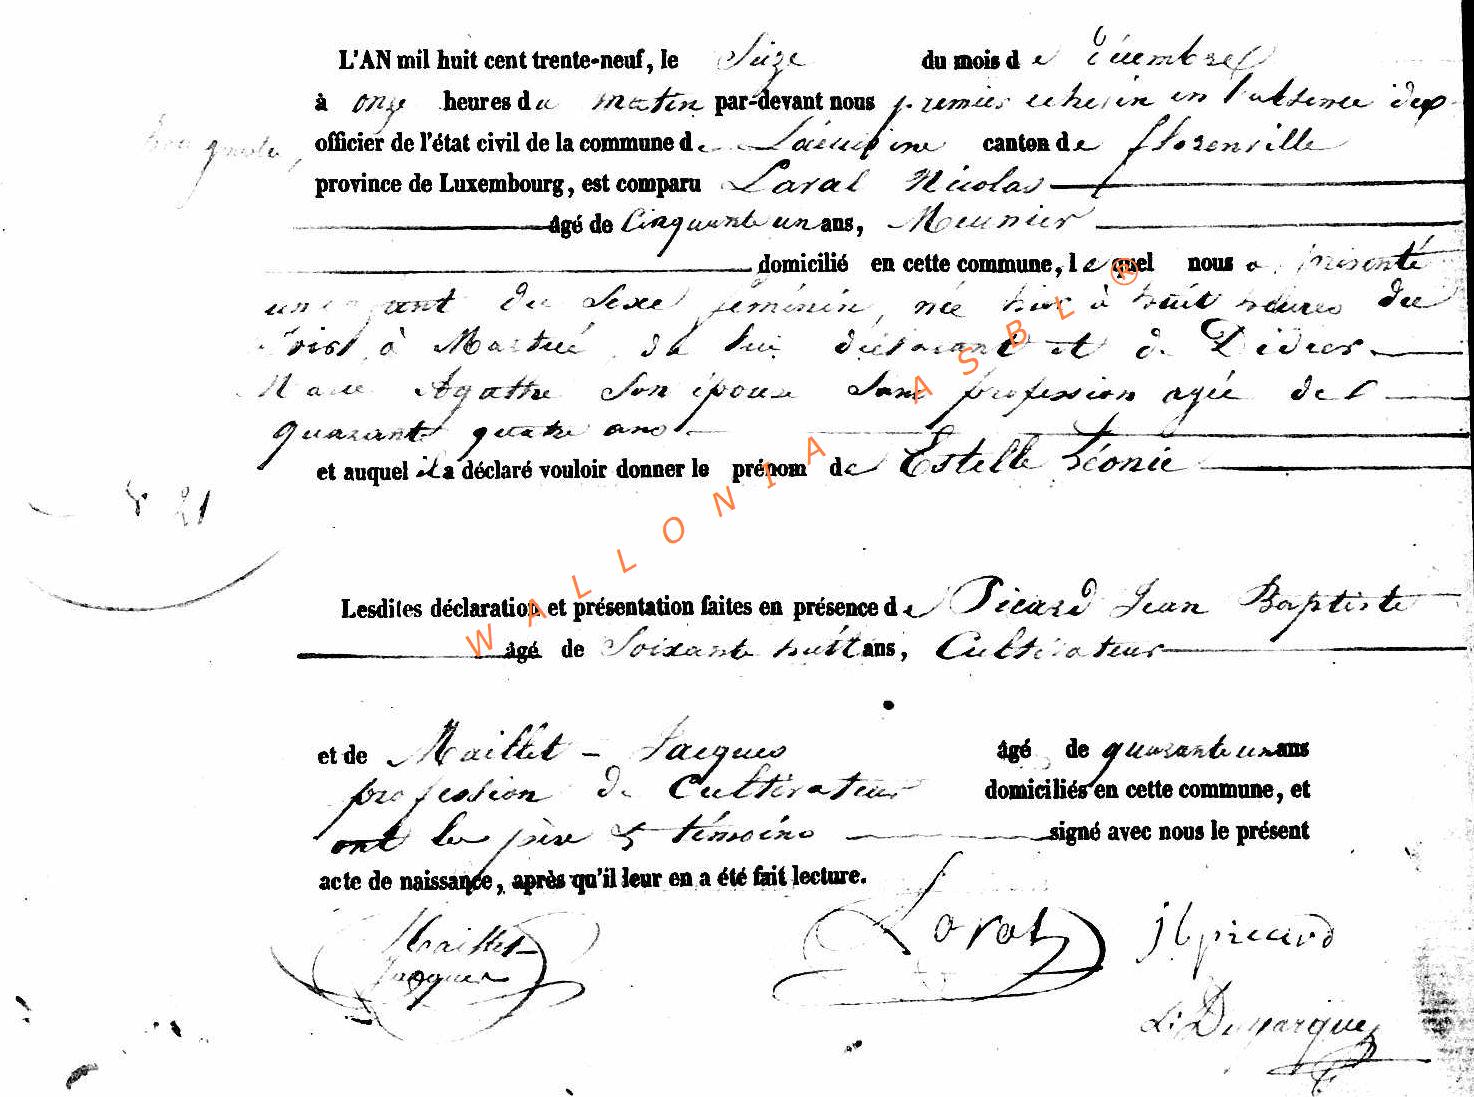 L'AN mil huit cent trente-neuf, le Seize du mois de décembre
à onze heures du matin par-devant nous premier echevin en l'absence du
officier de l'état civil de la commune de canton de florenville
province de Luxembourg, est comparu Laval Nicolas
âgé de Cinquante un ans, Meunier
domicilié en cette commune, lequel nous a présenté
un enfant du sexe féminin, née hier à huit heures du
soir à Martué, de lui déclarant et de Didier
Marie Agathe son épouse sans profession agée de
quarante quatre ans
et auquel il a déclaré vouloir donner le prénom de Estelle Léonie
21
Lesdites déclaration et présentation faites en présence de Picard Jean Baptiste
âgé de Soixante huit ans, Cultivateur
et de Maillet - Jacques âgé de quarante un ans
profession de Cultivateur domiciliés en cette commune, et
ont les père & témoins signé avec nous le présent
acte de naissance, après qu'il leur en a été fait lecture.
Maillet Laval jbpicard
Jacques
WALLONIA ASBL ®